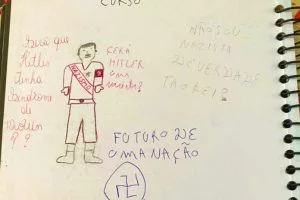 CURSO
Será que
Hitler
tinha
Síndrome
de
?
SERÁ
HITLER
?
NAZISMO
NÃO SOU
NAZISTA
DE VERDADE
TAOKEI?
FUTURO DE
UMA NAÇÃO